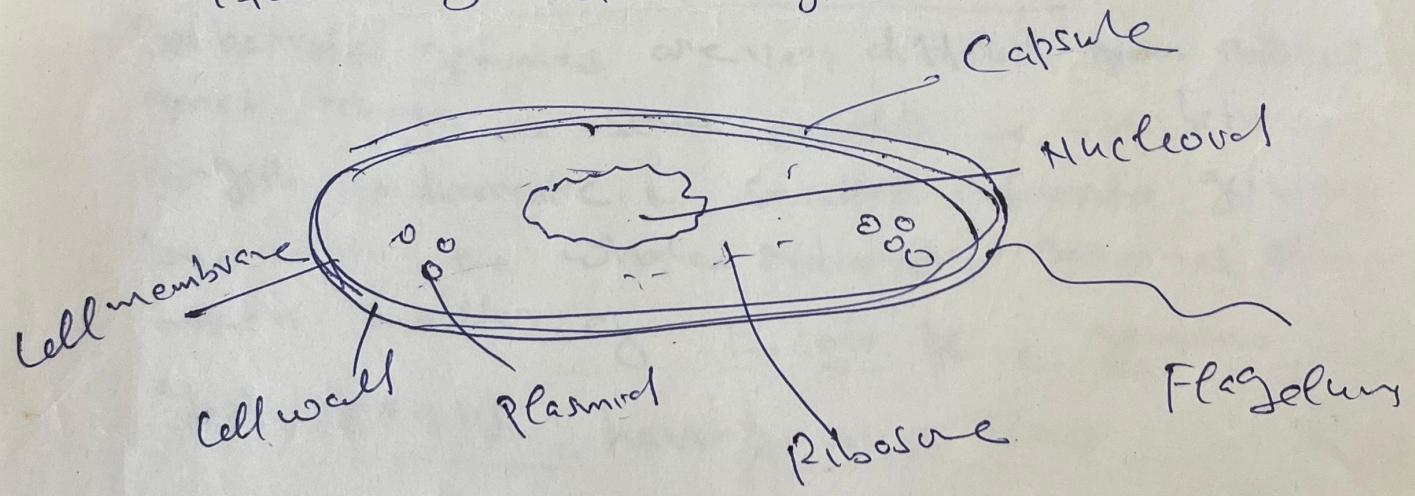 Capsule
Nucleoid
Cell membrane
Cell wall
Plasmid
Ribosome
Flagelum